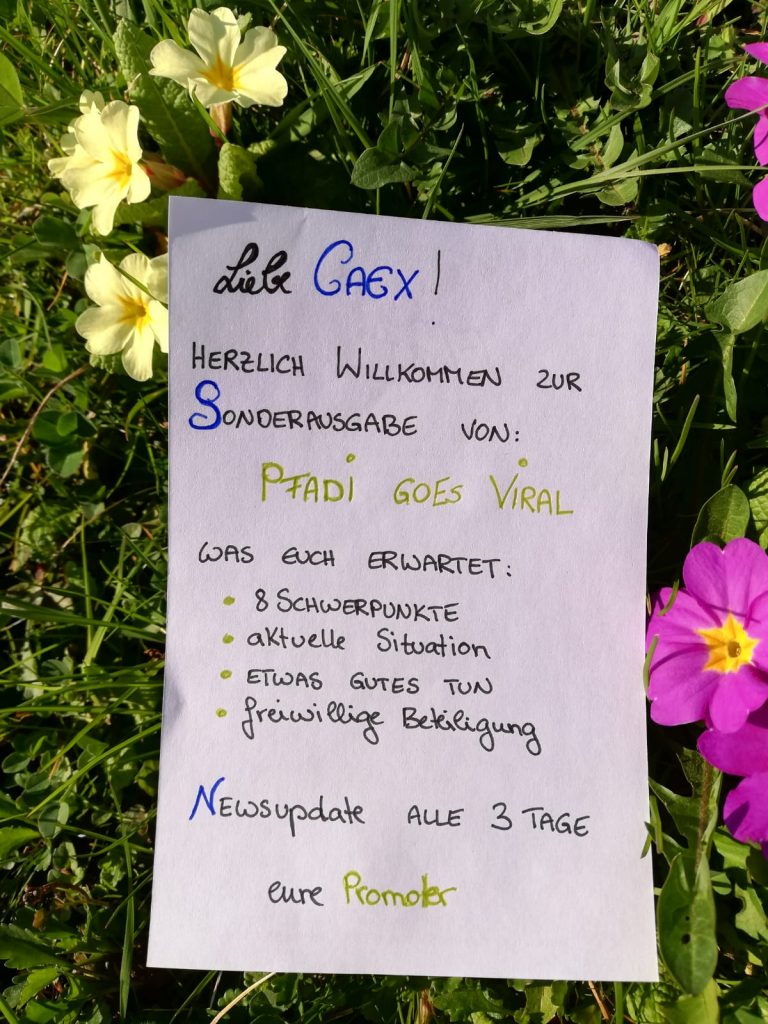 Liebe CAEX!
HERZLICH WILLKOMMEN ZUR
SONDERAUSGABE VON:
PFADI GOES VIRAL
WAS EUCH ERWARTET:
• 8 SCHWERPUNKTE
• aktuelle Situation
• ETWAS GUTES TUN
• freiwillige Beteiligung
NEWSupdate ALLE 3 TAGE
eure Promoter